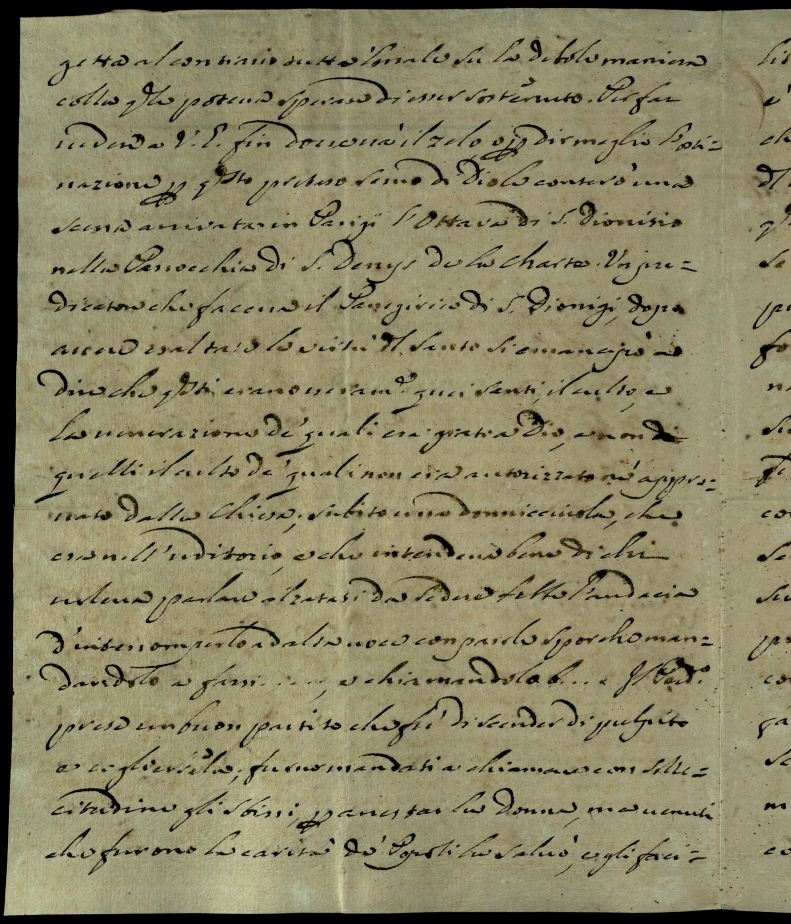 getta al contrario tutto 'l male su la debole maniera
colla q.le poteva sperare di esser sostenuto. Per far
vedere a V.E. fin dove và il zelo o p dir meglio l'osti=
nazione p q.sto preteso servo di Dio le conterò una
scena arrivata in Parigi l'Ottava di S. Dionisio
nella Parocchia di S. Denys de la Chartre. Un pre=
dicatore che faceva il Panegirico di S. Dionigi, dopo
avere esaltate le virtù d.l Santo si emancipò a
dire che q.sti erano veram.e quei santi, il culto, e
la venerazione de' quali era grata a Dio, e non di
quelli il culto de' quali non era autorizzato nè appro=
vato dalla Chiesa, subito una donnicciuola, che
era nell'uditorio, e che intendeva bene di chi
voleva parlare alzatasi da sedere ebbe l'audacia
d'interromperlo ad alta voce con parole sporche man=
dandolo a farsi ...., e chiamandolo b... e Il Pred.e
prese un buon partito che fù di scender di pulpito
e cogliersela; furno mandati a chiamare con solle=
citudine gli sbirri, p arrestar la Donna, ma venuti
che furono la carità de' Apposti la salvò, e gli feci=